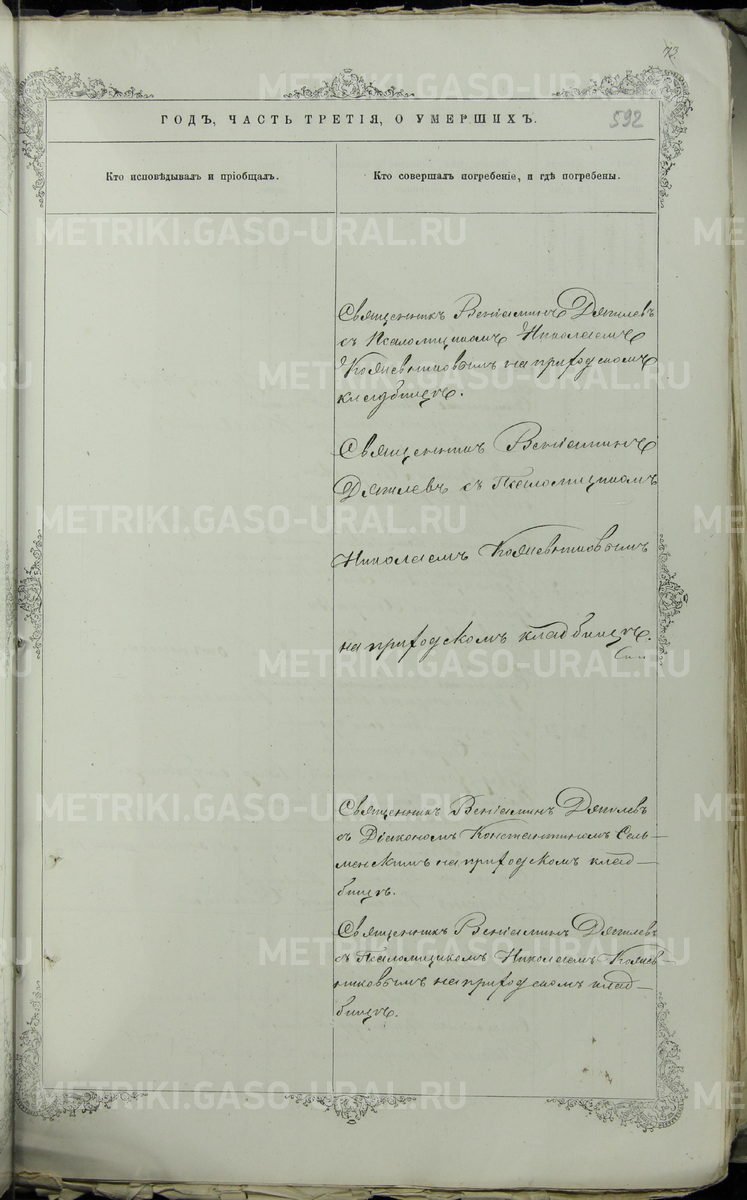 73
ГОДЪ, ЧАСТЬ ТРЕТІЯ, О УМЕРШИХЪ.
592
Кто исповѣдывалъ и пріобщалъ.
Кто совершалъ погребеніе, и гдѣ погребены.
Священникъ Веніаминъ Дягилевъ
съ Псаломщикомъ Николаемъ
Кожевниковымъ на приходскомъ
кладбищѣ.
Священникъ Веніаминъ
Дягилевъ съ Псаломщикомъ
Николаемъ Кожевниковымъ
на приходскомъ кладбищѣ.
Священникъ Веніаминъ Дягилевъ
съ Діакономъ Константиномъ Сель-
менскимъ на приходскомъ клад-
бищѣ.
Священникъ Веніаминъ Дягилевъ
съ Псаломщикомъ Николаемъ Кожев-
никовымъ на приходскомъ клад-
бищѣ.
METRIKI.GASO-URAL.RU